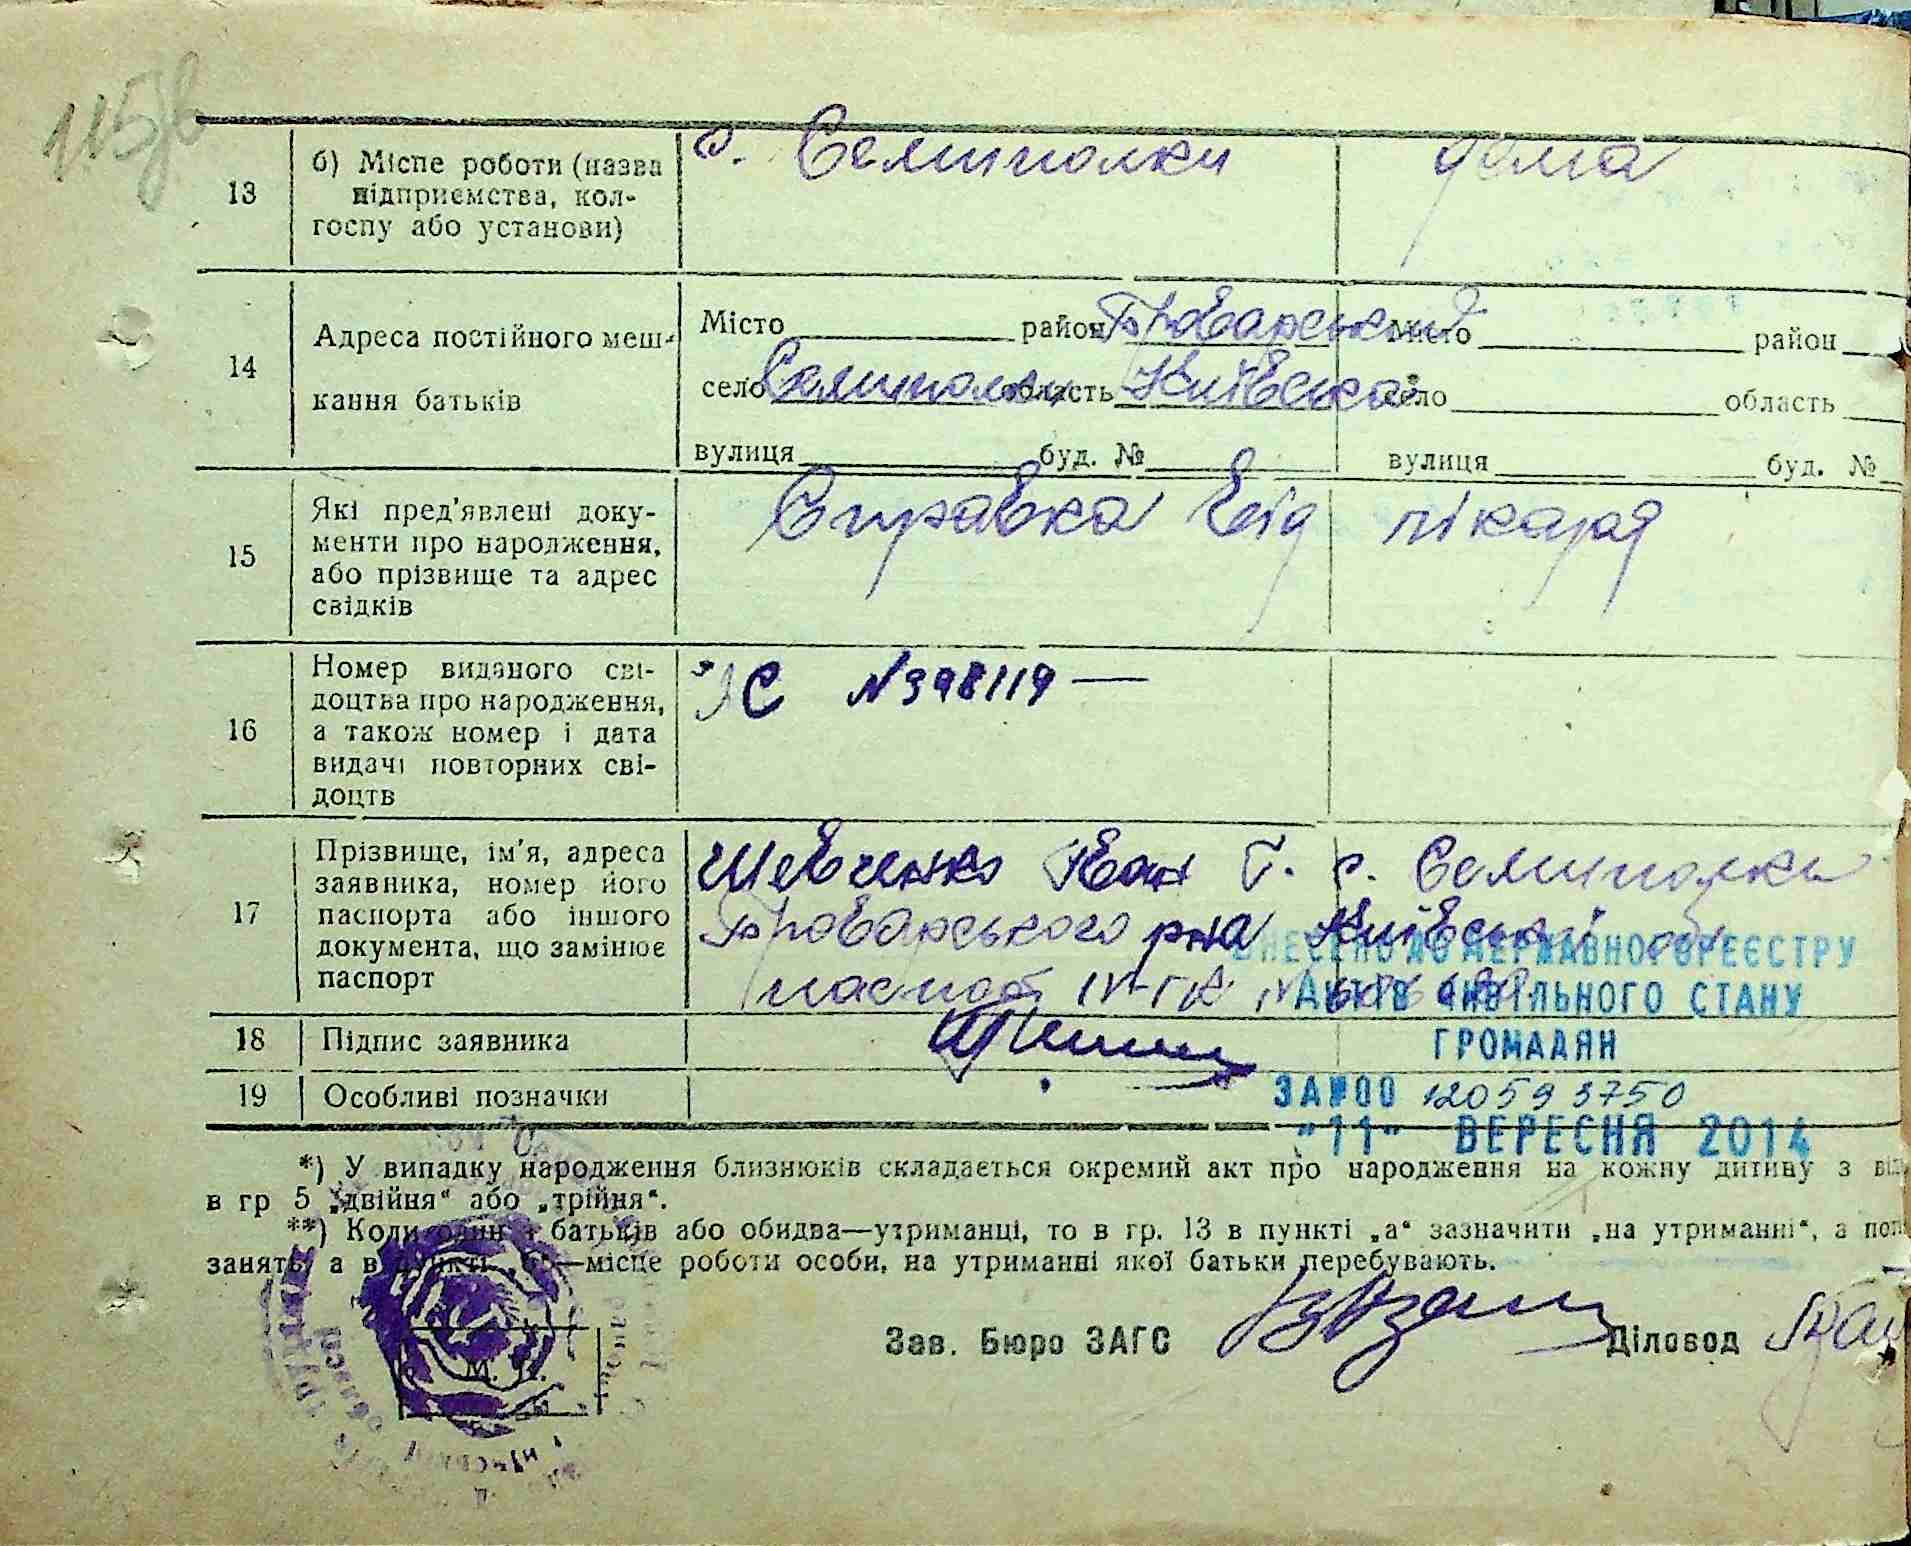 115зв
13
б) Місце роботи (назва
підприємства, кол-
госпу або установи)
с. Семиполки
дома
14
Адреса постійного меш-
кання батьків
Місто район Броварський
село Семиполки область Київська
вулиця буд. №
Місто район
село область
вулиця буд. №
15
Які пред'явлені доку-
менти про народження,
або прізвище та адрес
свідків
Справка від лікаря
16
Номер виданого сві-
доцтва про народження,
а також номер і дата
видачі повторних сві-
доцтв
N 398119 —
17
Прізвище, ім'я, адреса
заявника, номер його
паспорта або іншого
документа, що замінює
паспорт
Шевченко Іван Г. с. Семиполки
Броварського р-на Київської обл
паспорт
18
Підпис заявника
19
Особливі позначки
ВНЕСЕНО ДО ДЕРЖАВНОГО РЕЄСТРУ
АКТІВ ЦИВІЛЬНОГО СТАНУ
ГРОМАДЯН
ЗА №00 120593750
"11" ВЕРЕСНЯ 2014
*) У випадку народження близнюків складається окремий акт про народження на кожну дитину з від
в гр 5 „двійня“ або „трійня“.
**) Коли один з батьків або обидва—утриманці, то в гр. 13 в пункті „а“ зазначити „на утриманні“, а поп
занять, а в пункті „б“—місце роботи особи, на утриманні якої батьки перебувають.
М. П.
Зав. Бюро ЗАГС
Діловод